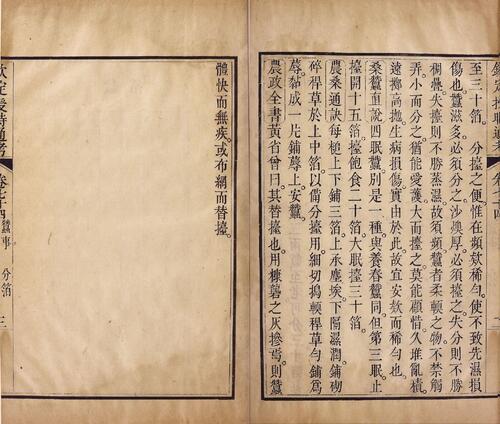 至三十箔。分擡之便惟在頻款稀匀使不致先濕損
傷也蠶滋多必須分之沙燠厚必須擡之失分則不勝
稠疊失擡則不勝蒸濕故須頻蠶者柔軟之物不禁觸
弄小而分之猶能愛護大而擡之莫能顧惜久堆亂積
遠擲高抛生病損傷實由於此故宜安款而稀匀也
桑蠶直說四眠蠶別是一種與養春蠶同但第三眠止
擡開十五箔擡飽食二十箔大眠擡三十箔
農桑通訣每槌上下鋪三箔上承塵埃下隔濕潤鋪砌
碎稈草於上中箔以備分擡用細切搗軟稈草匀鋪爲
蓐黏成一片鋪蓐上安蠶
農政全書黃省曾曰其替擡也用糠礱之灰摻焉則蠶
體快而無疾或布網而替擡
欽定授時通考 卷七十四 蠶事 分箔 三